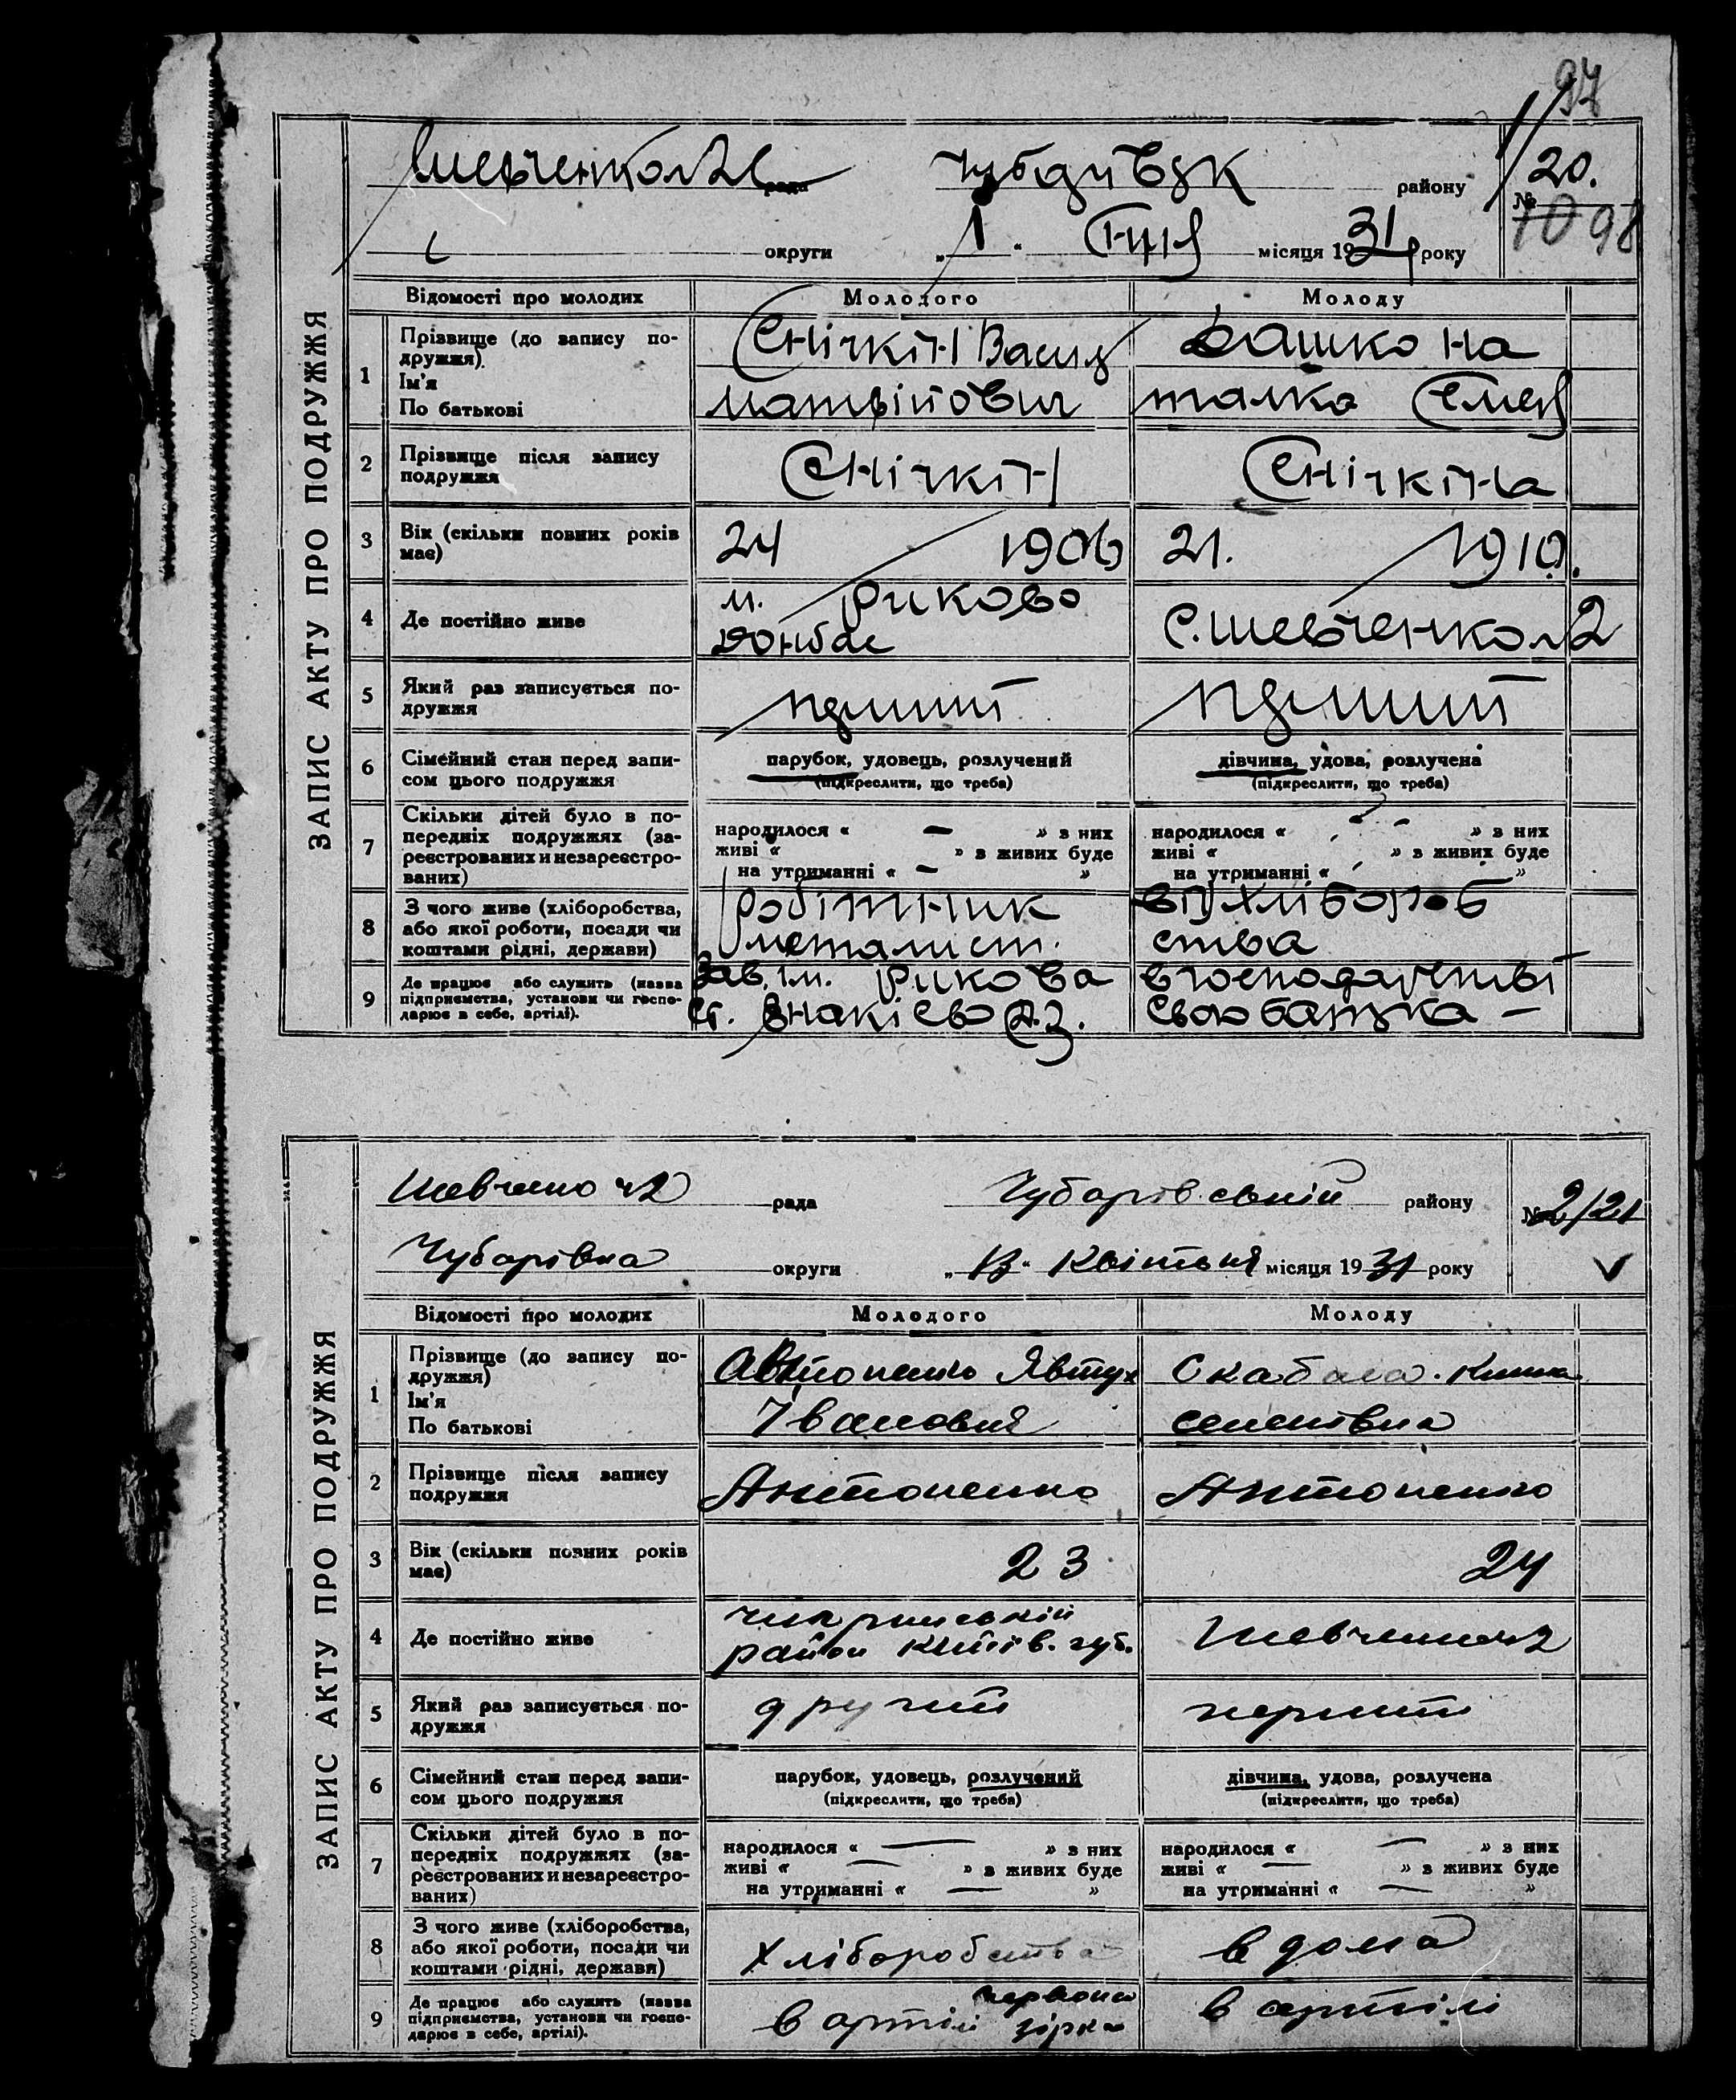 97
Шевченко №2 рада Чубарівськ району № 20.
10 98
округи „ 1 “ Січня місяця 1931 року
ЗАПИС АКТУ ПРО ПОДРУЖЖЯ
Відомості про молодих Молодого Молоду
1 Прізвище (до запису по-
дружжя)
Ім'я
По батькові
Снічкін Васил
Матвійович
Дашко На
талка Семен
2 Прізвище після запису
подружжя
Снічкін
Снічкіна
3 Вік (скільки повних років
має)
24 1906
21. 1910.
4 Де постійно живе
м. Риково
Донбас
с. Шевченко №2
5 Який раз записується по-
дружжя
перший
перший
6 Сімейний стан перед запи-
сом цього подружжя
парубок, удовець, розлучений
(підкреслити, що треба)
дівчина, удова, розлучена
(підкреслити, що треба)
7 Скільки дітей було в по-
передніх подружжях (за-
реєстрованих и незареєстро-
ваних)
народилося « — » з них
живі « » з живих буде
на утриманні « — »
народилося « - » з них
живі « » з живих буде
на утриманні « »
8 З чого живе (хліборобства,
або якої роботи, посади чи
коштами рідні, держави)
робітник
металист.
хлібороб
ства
9 Де працює або служить (назва
підприємства, установи чи госпо-
дарює в себе, артілі).
Зав. ім. Рикова
ст. Єнакієво
в господарстві
свого батька —
Шевченко №2 рада Чубарівський району № 2/21
Чубарівка округи „ 13 “ Квітня місяця 1931 року
ЗАПИС АКТУ ПРО ПОДРУЖЖЯ
Відомості про молодих Молодого Молоду
1 Прізвище (до запису по-
дружжя)
Ім'я
По батькові
Антоненко Явтух
Іванович
Скабала
Семенівна
2 Прізвище після запису
подружжя
Антоненко
Антоненко
3 Вік (скільки повних років
має)
23
24
4 Де постійно живе
район Київ. губ.
Шевченко №2
5 Який раз записується по-
дружжя
другий
перший
6 Сімейний стан перед запи-
сом цього подружжя
парубок, удовець, розлучений
(підкреслити, що треба)
дівчина, удова, розлучена
(підкреслити, що треба)
7 Скільки дітей було в по-
передніх подружжях (за-
реєстрованих и незареєстро-
ваних)
народилося « — » з них
живі « — » з живих буде
на утриманні « — »
народилося « — » з них
живі « — » з живих буде
на утриманні « — »
8 З чого живе (хліборобства,
або якої роботи, посади чи
коштами рідні, держави)
Хліборобства
в дома
9 Де працює або служить (назва
підприємства, установи чи госпо-
дарює в себе, артілі).
в артілі червона
зірка
в артілі